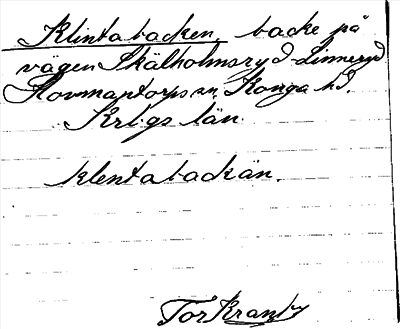 Klintabacken, backe på
vägen Skälholmsryd-Linneryd
Hovmantorps sn. Konga hd.
Krbgs län.
klentabackän.
Tor Krantz